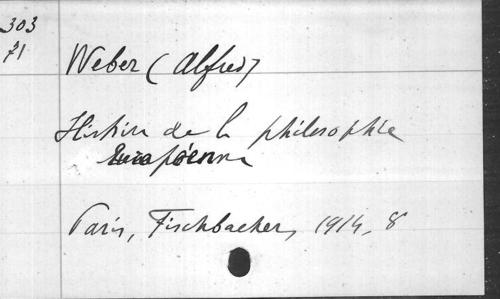 303
71
Weber (Alfred)
Histoire de la philosophie
Européenne
Paris, Fischbacher, 1914, 8